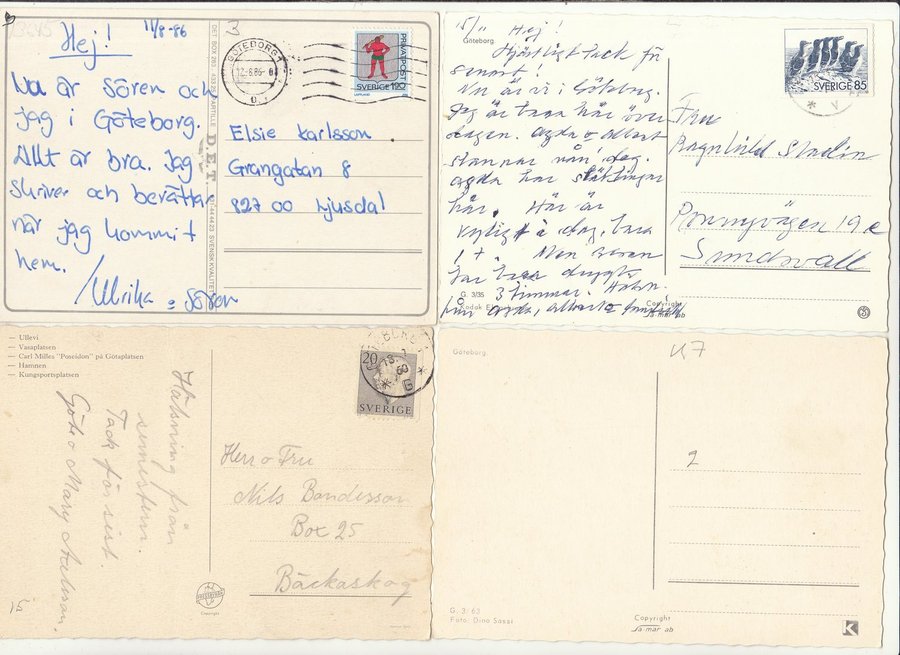 Hej!
11/8-86
Nu är Sören och
jag i Göteborg.
Allt är bra. Jag
skriver och berättar
när jag kommit
hem.
/Ulrika o Sören
DET BOX 250 433 25 PARTILLE
D.E.T.
SVENSK KVALITET
GÖTEBORG 1
12.8.86
PRIVATPOST
SVERIGE 120
LAPPLAND
Elsie Karlsson
Grangatan 8
827 00 Ljusdal
15/11 Hej!
Göteborg
Hjärtligt tack för
senast!
Nu är vi i Göteborg.
Jag är bara här över
dagen. Agda o Albert
stannar nån dag.
Agda har släktingar
här. Här är
i dag, bara
1+. Men resan
har bara
3 timmar.
från Agda, Albert o
G. 3/35
Kodak
Copyright
Sa mar ab
SVERIGE 85
Fru
Ragnhild Stadin
19 c
Sundsvall
— Ullevi
— Vasaplatsen
— Carl Milles "Poseidon" på Götaplatsen
— Hamnen
— Kungsportsplatsen
Hälsning från
semestern.
Tack för sist.
Göte o Mary
15
Copyright
20
SVERIGE
Herr o Fru
Nils Bondesson
Box 25
Bäckaskog
Göteborg.
K7
2
G. 3/63
Foto: Dino Sassi
Copyright
Sa mar ab
K